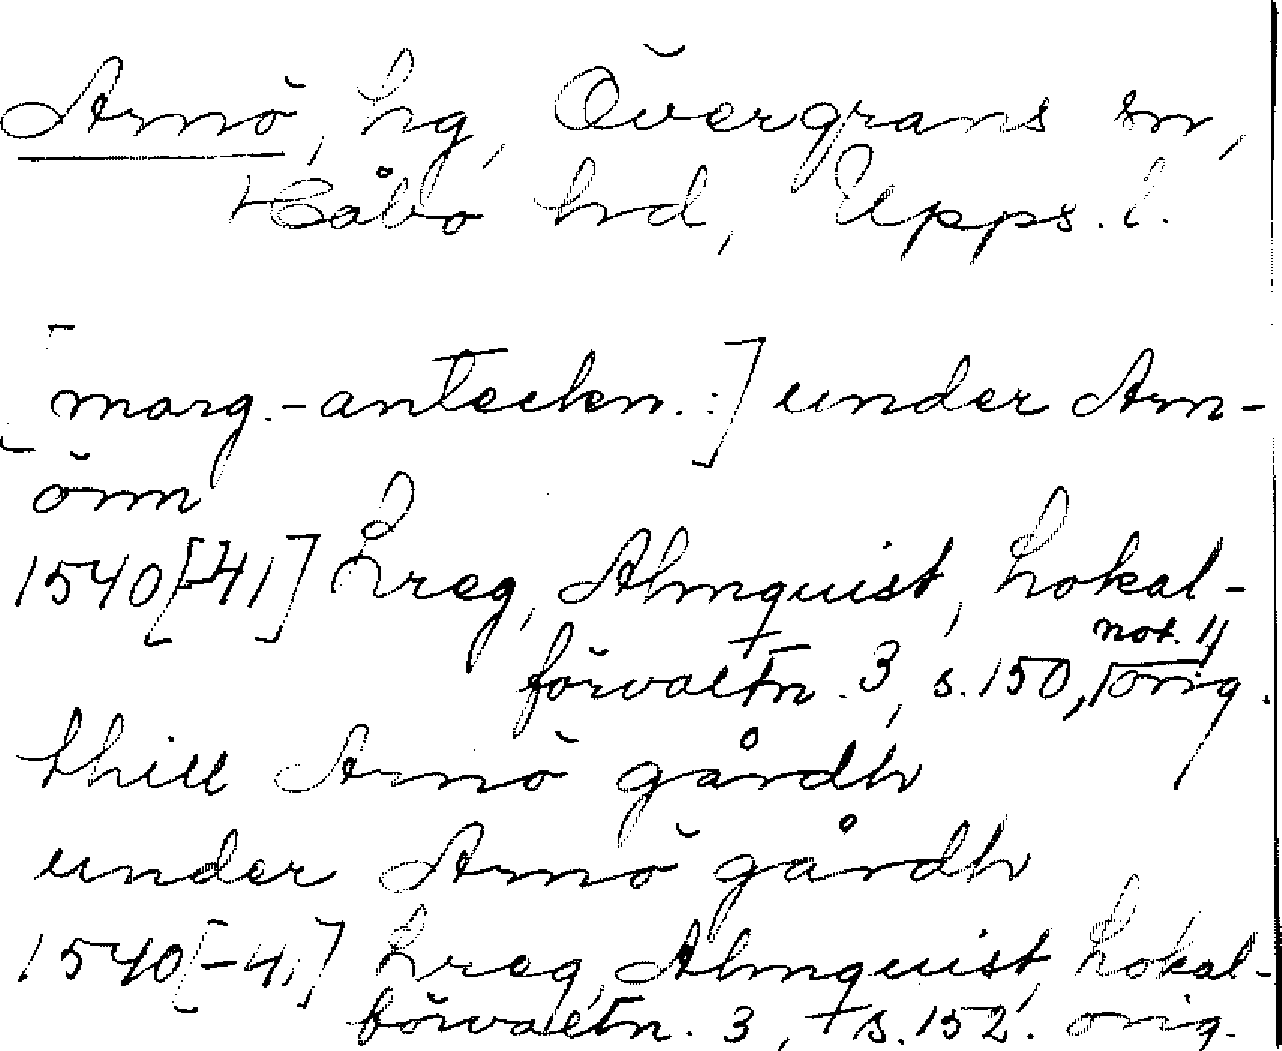 Arnö, hg, Övergrans sn,
Håbo hd, Upps. l.
[marg.-anteckn.:] under Arn-
önn
1540[-41] Lreg, Almquist, Lokal-
förvaltn. 3, s. 150, not. 4 orig.
thill Arnö gårdh
under Arnö gårdh
1540[-41] Lreg, Almquist, Lokal-
förvaltn. 3, s. 152. orig.